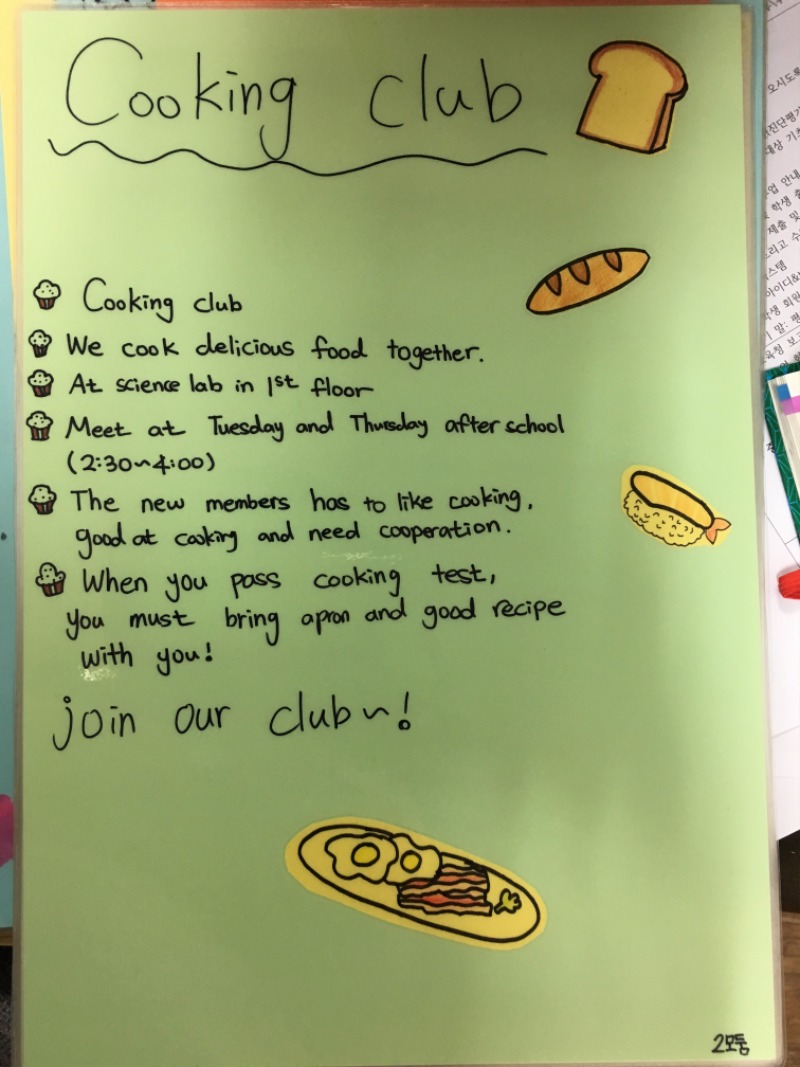 Cooking club
Cooking club
We cook delicious food together.
At science lab in 1st floor
Meet at Tuesday and Thursday after school
(2:30~4:00)
The new members has to like cooking,
good at cooking and need cooperation.
When you pass cooking test,
you must bring apron and good recipe
with you!
join our club~!
2모둠
오시도록
진단평가
대상 기초
업 안내
학생 출
제출 및
그리고 수
시스템
아이디&
학생 회원
기 말: 편
육청 보